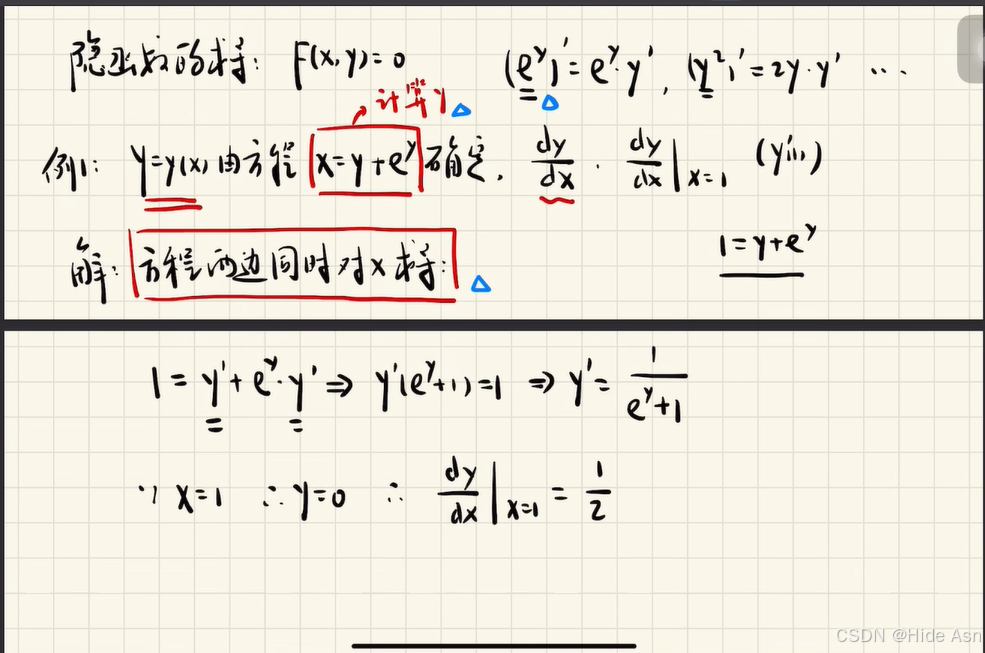 隐函数的求导: F(x,y)=0 (e^y)'=e^y·y', (y²)'=2y·y' ...
计算y
例1: y=y(x)由方程 x=y+e^y 确定, dy/dx · dy/dx|x=1 (y'(1))
解: 方程两边同时对x求导: 1=y+e^y
1=y'+e^y·y' ⇒ y'(e^y+1)=1 ⇒ y'=1/(e^y+1)
∵ x=1 ∴y=0 ∴ dy/dx|x=1 = 1/2
CSDN @Hide Asn